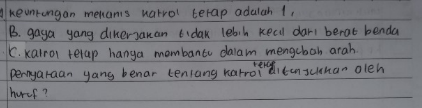 keuntungan mekanis katrol tetap adalah 1,
B. gaya yang dikerjakan tidak lebih kecil dari berat benda
C. katrol tetap hanya membantu dalam mengubah arah
pernyataan yang benar tentang katrol tetap ditunjukkan oleh
huruf?